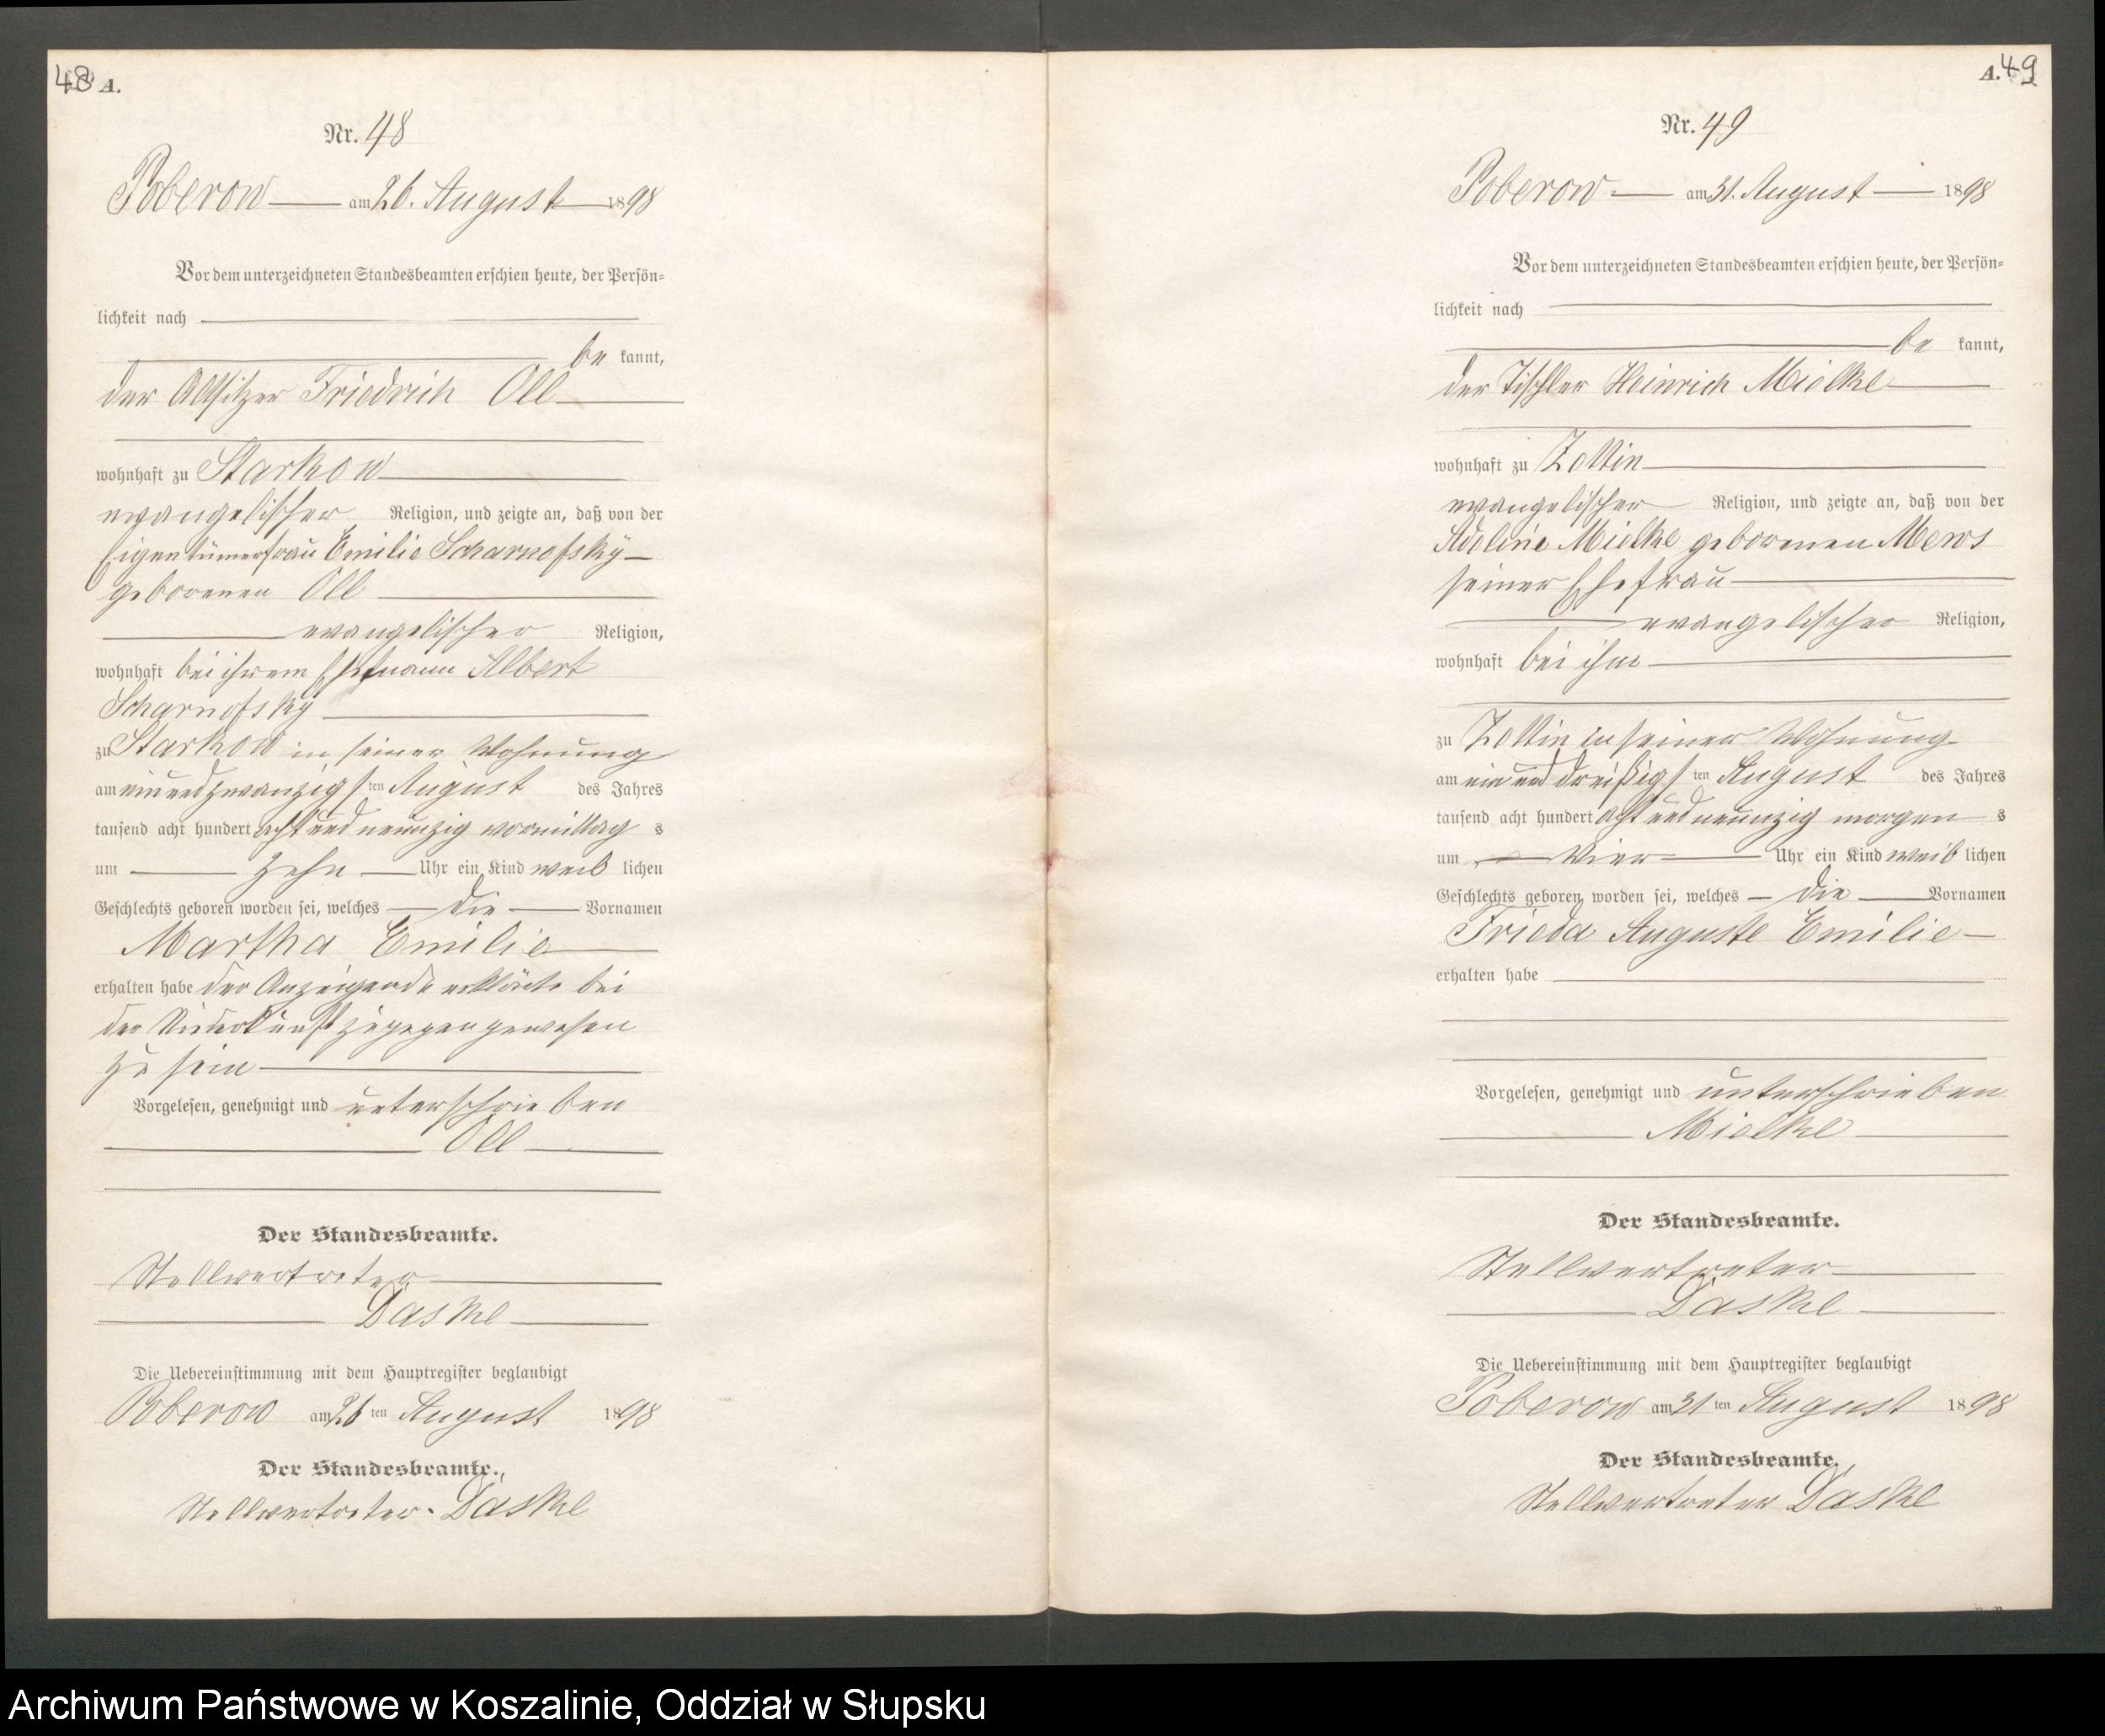 48 A.
Nr. 48
Poberow am 26. August 1898
Vor dem unterzeichneten Standesbeamten erschien heute, der Persön-
lichkeit nach
be kannt,
der Altsitzer Friedrich Oll
wohnhaft zu Starkow
evangelischer Religion, und zeigte an, daß von der
Eigentümerfrau Emilie Scharnofsky
geborenen Oll
evangelischer Religion,
wohnhaft bei ihrem Ehemann Albert
Scharnofsky
zu Starkow in seiner Wohnung
am einundzwanzigsten August des Jahres
tausend acht hundert acht und neunzig vormittag s
um zehn Uhr ein Kind weib lichen
Geschlechts geboren worden sei, welches die Vornamen
Martha Emilie
erhalten habe der Anzeigende erklärte bei
der Niederkunft zugegen gewesen
zu sein
Vorgelesen, genehmigt und unterschrieben
Oll
Der Standesbeamte.
Stellvertreter
Daske
Die Uebereinstimmung mit dem Hauptregister beglaubigt
Poberow am 26 ten August 1898
Der Standesbeamte.
Stellvertreter Daske
A. 49
Nr. 49
Poberow am 31. August 1898
Vor dem unterzeichneten Standesbeamten erschien heute, der Persön-
lichkeit nach
be kannt,
der Tischler Heinrich Mielke
wohnhaft zu Zettin
evangelischer Religion, und zeigte an, daß von der
Adeline Mielke geborenen Mews
seiner Ehefrau
evangelischer Religion,
wohnhaft bei ihm
zu Zettin in seiner Wohnung
am ein und dreißigsten August des Jahres
tausend acht hundert acht und neunzig morgen s
um vier Uhr ein Kind weib lichen
Geschlechts geboren worden sei, welches die Vornamen
Frieda Auguste Emilie
erhalten habe
Vorgelesen, genehmigt und unterschrieben
Mielke
Der Standesbeamte.
Stellvertreter
Daske
Die Uebereinstimmung mit dem Hauptregister beglaubigt
Poberow am 31 ten August 1898
Der Standesbeamte.
Stellvertreter Daske
Archiwum Państwowe w Koszalinie, Oddział w Słupsku